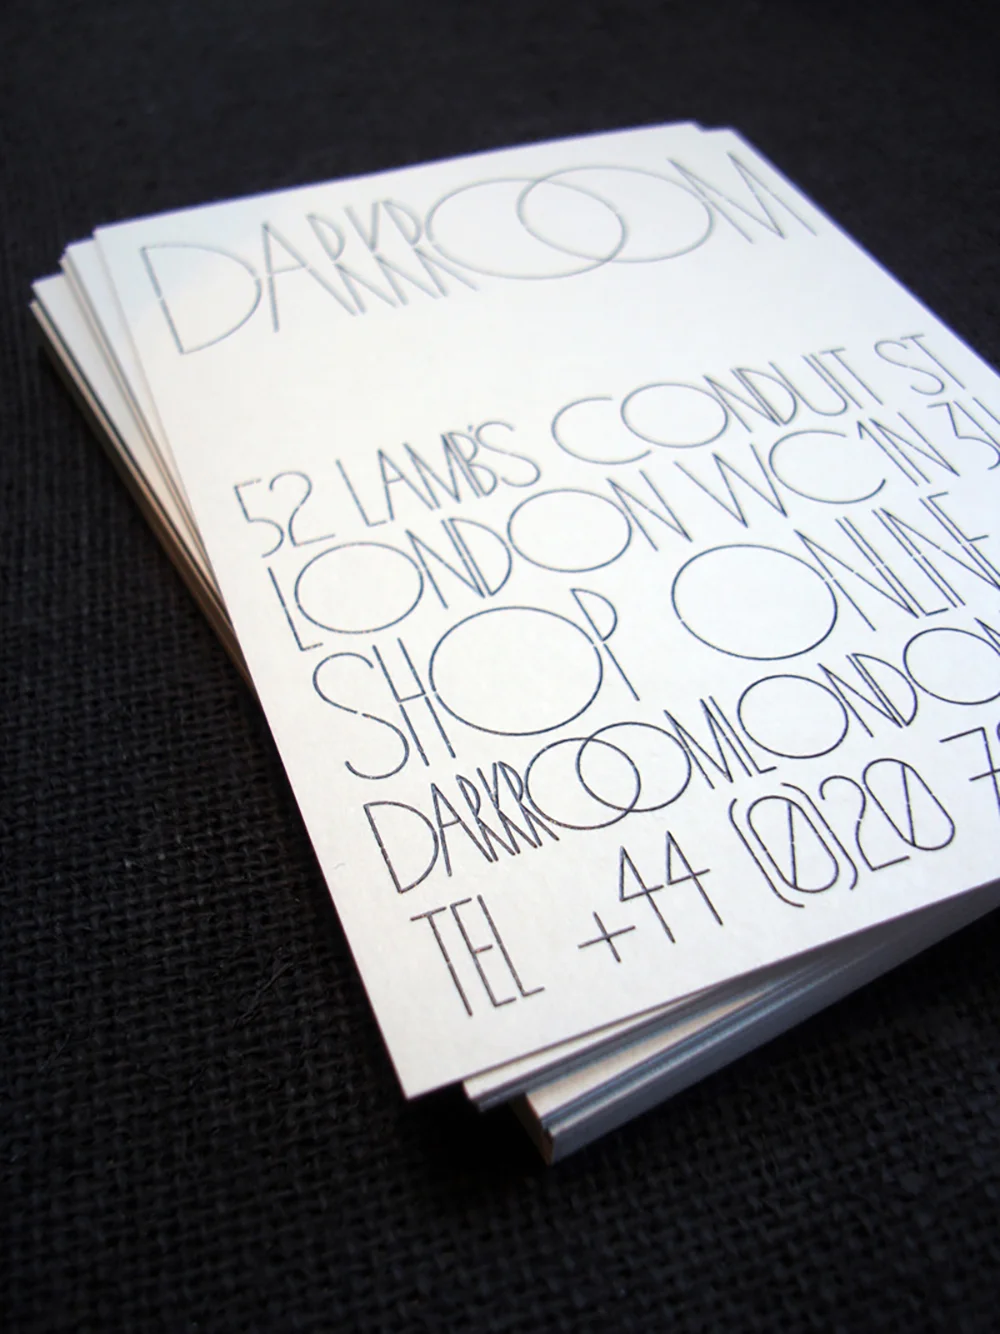 DARKROOM
52 LAMB'S CONDUIT ST
LONDON WC1N
SHOP ONLINE
DARKROOMLONDON
TEL +44 (0)20